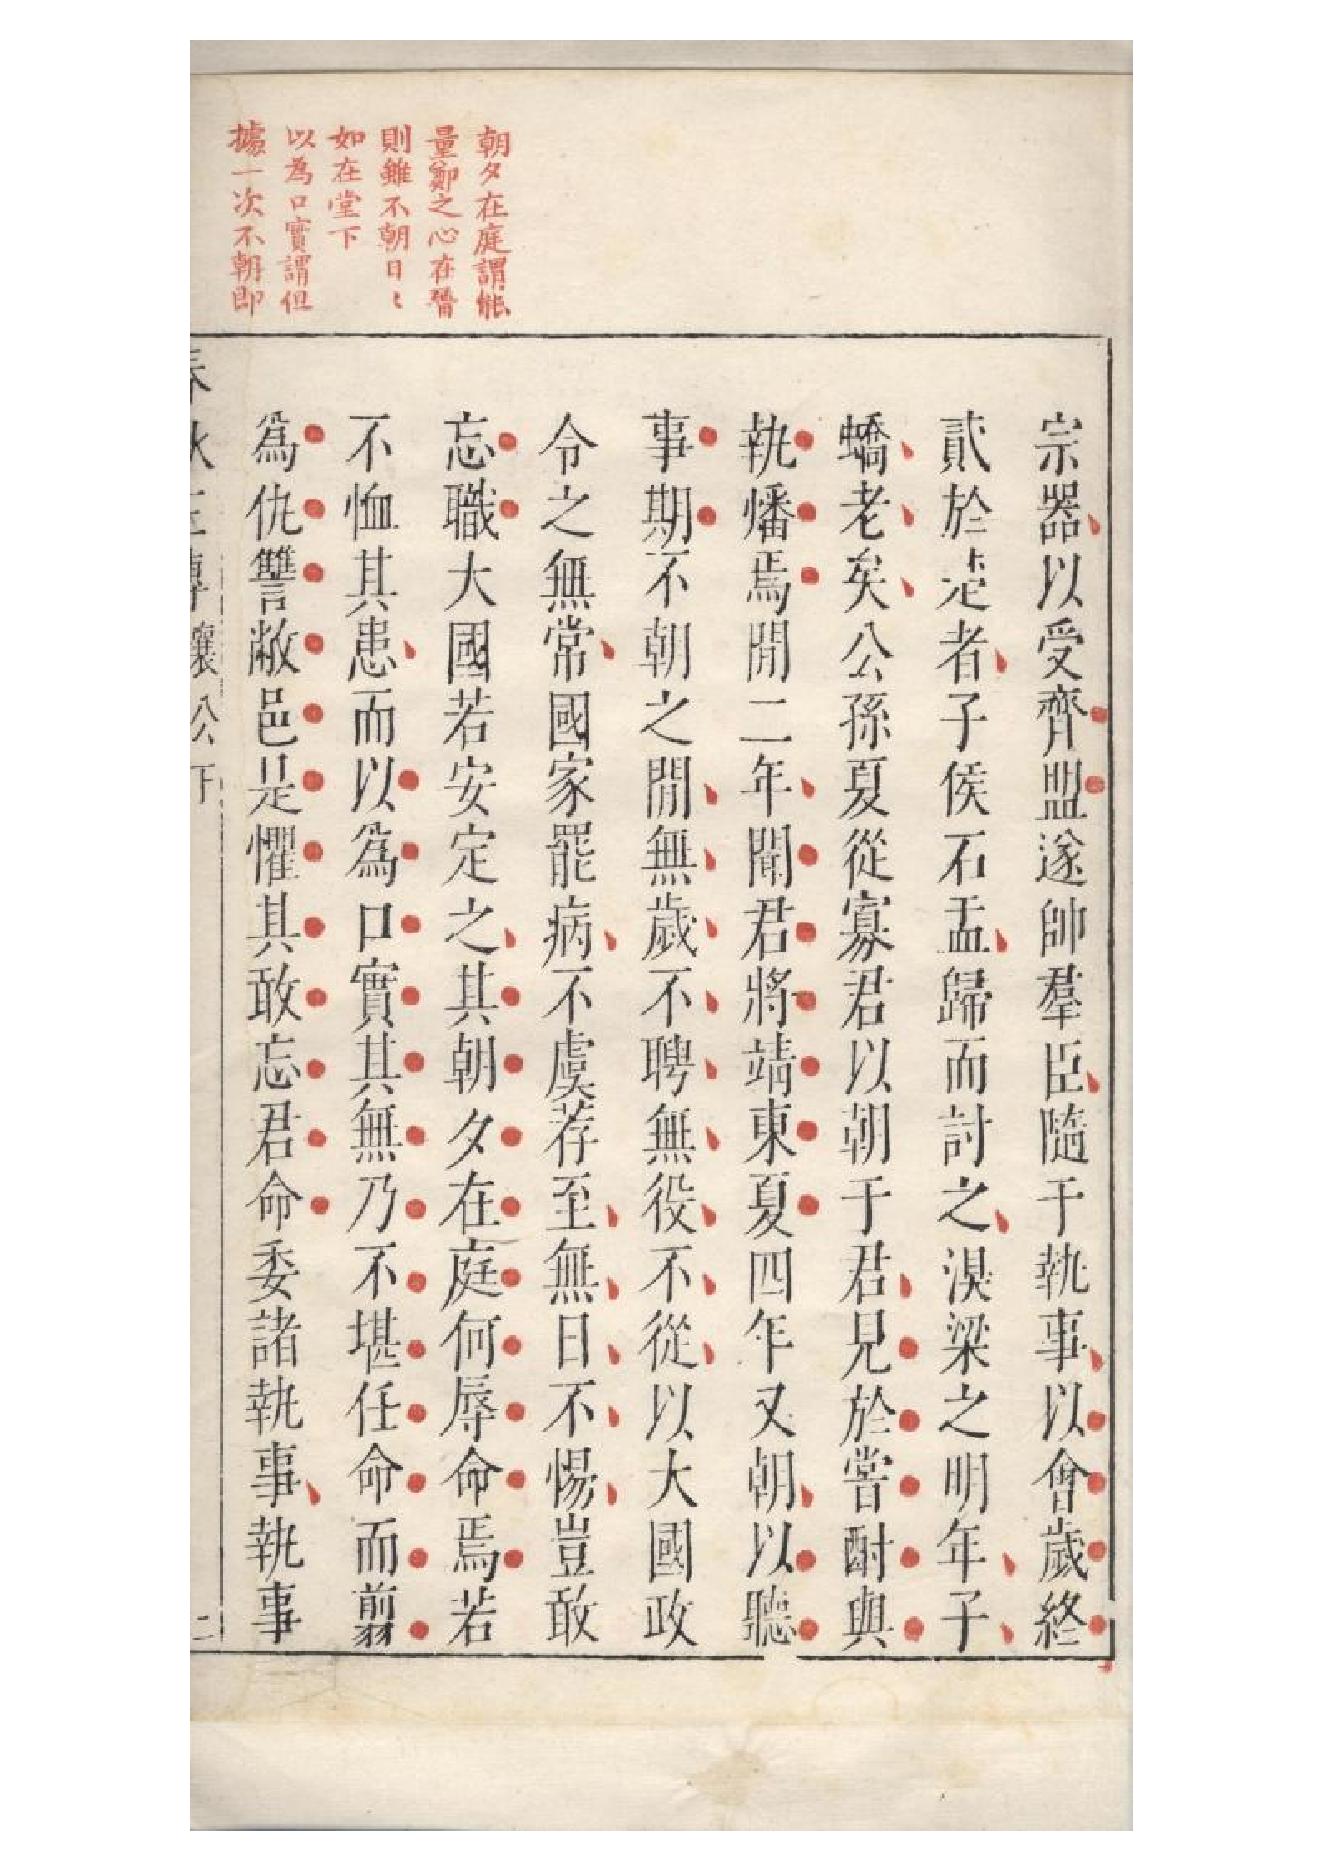 朝夕在庭謂能
量鄭之心在晉
則雖不朝日〻
如在堂下
以為口實謂但
據一次不朝即
宗器以受齊盟遂帥羣臣隨于執事以會歲終
貳於楚者子侯石盂歸而討之湨梁之明年子
蟜老矣公孫夏從寡君以朝于君見於嘗酎與
執燔焉閒二年聞君將靖東夏四年又朝以聽
事期不朝之閒無歲不聘無役不從以大國政
令之無常國家罷病不虞荐至無日不惕豈敢
忘職大國若安定之其朝夕在庭何辱命焉若
不恤其患而以爲口實其無乃不堪任命而翦
爲仇讐敝邑是懼其敢忘君命委諸執事執事
春秋左傳襄公下 二